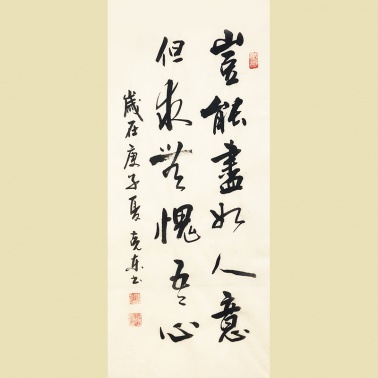 豈能盡如人意
但求無愧吾心
歲在庚子夏克東書